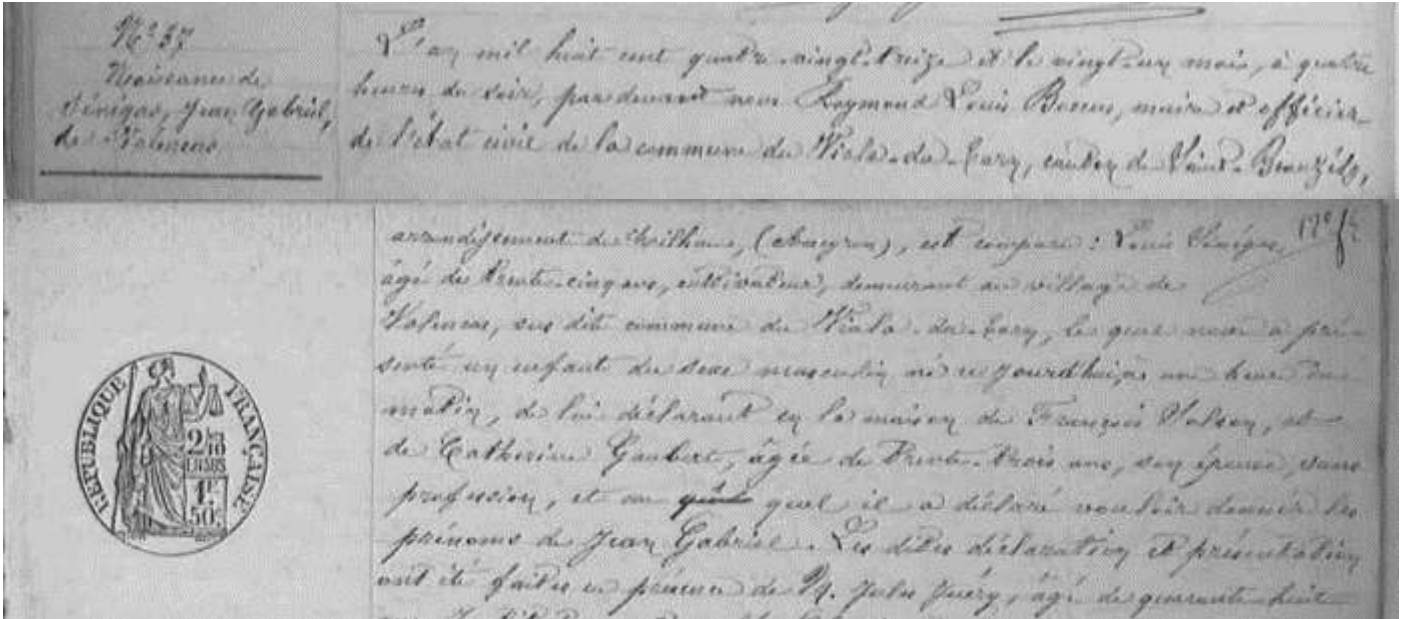 N° 37
Naissance de
Sénégas, Jean Gabriel,
de Valencas
L'an mil huit cent quatre-vingt-treize et le vingt-un mais, à quatre
heures du soir, par devant nous Raymond Louis maire et officier
de l'état civil de la commune du Viala-du-Tarn, canton de Saint-Beauzély,
arrondissement de Milhau, (Aveyron), est comparu : Louis Sénégas,
âgé de trente-cinq ans, cultivateur, demeurant au village de
Valencas, sus dite commune du Viala-du-Tarn, le quel nous a pré-
senté un enfant du sexe masculin né ce jourd'hui, à une heure du
matin, de lui déclarant en la maison de François et
de Catherine Gaubert, âgée de trente-trois ans, son épouse, sans
profession, et au quel il a déclaré vouloir donner les
prénoms de Jean Gabriel. Les dites déclaration et présentation
ont été faites en présence de M. Jules Juéry, âgé de quarante-huit
RÉPUBLIQUE FRANÇAISE
2/10
EN SUS
1F
50c